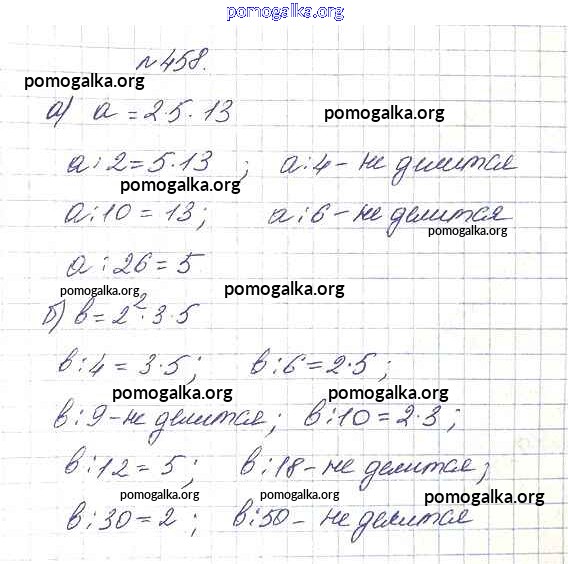 pomogalka.org
№458.
pomogalka.org
а) a = 2·5·13
pomogalka.org
a:2=5·13 ; a:4 - не делится
pomogalka.org
a:10 = 13; a:6 - не делится
pomogalka.org
a:26=5
pomogalka.org pomogalka.org
б) в=2²·3·5
в:4 = 3·5; в:6=2·5;
pomogalka.org pomogalka.org
в:9 - не делится; в:10=2·3;
pomogalka.org
в:12 = 5; в:18 - не делится;
pomogalka.org pomogalka.org pomogalka.org
в:30=2 ; в:50 - не делится